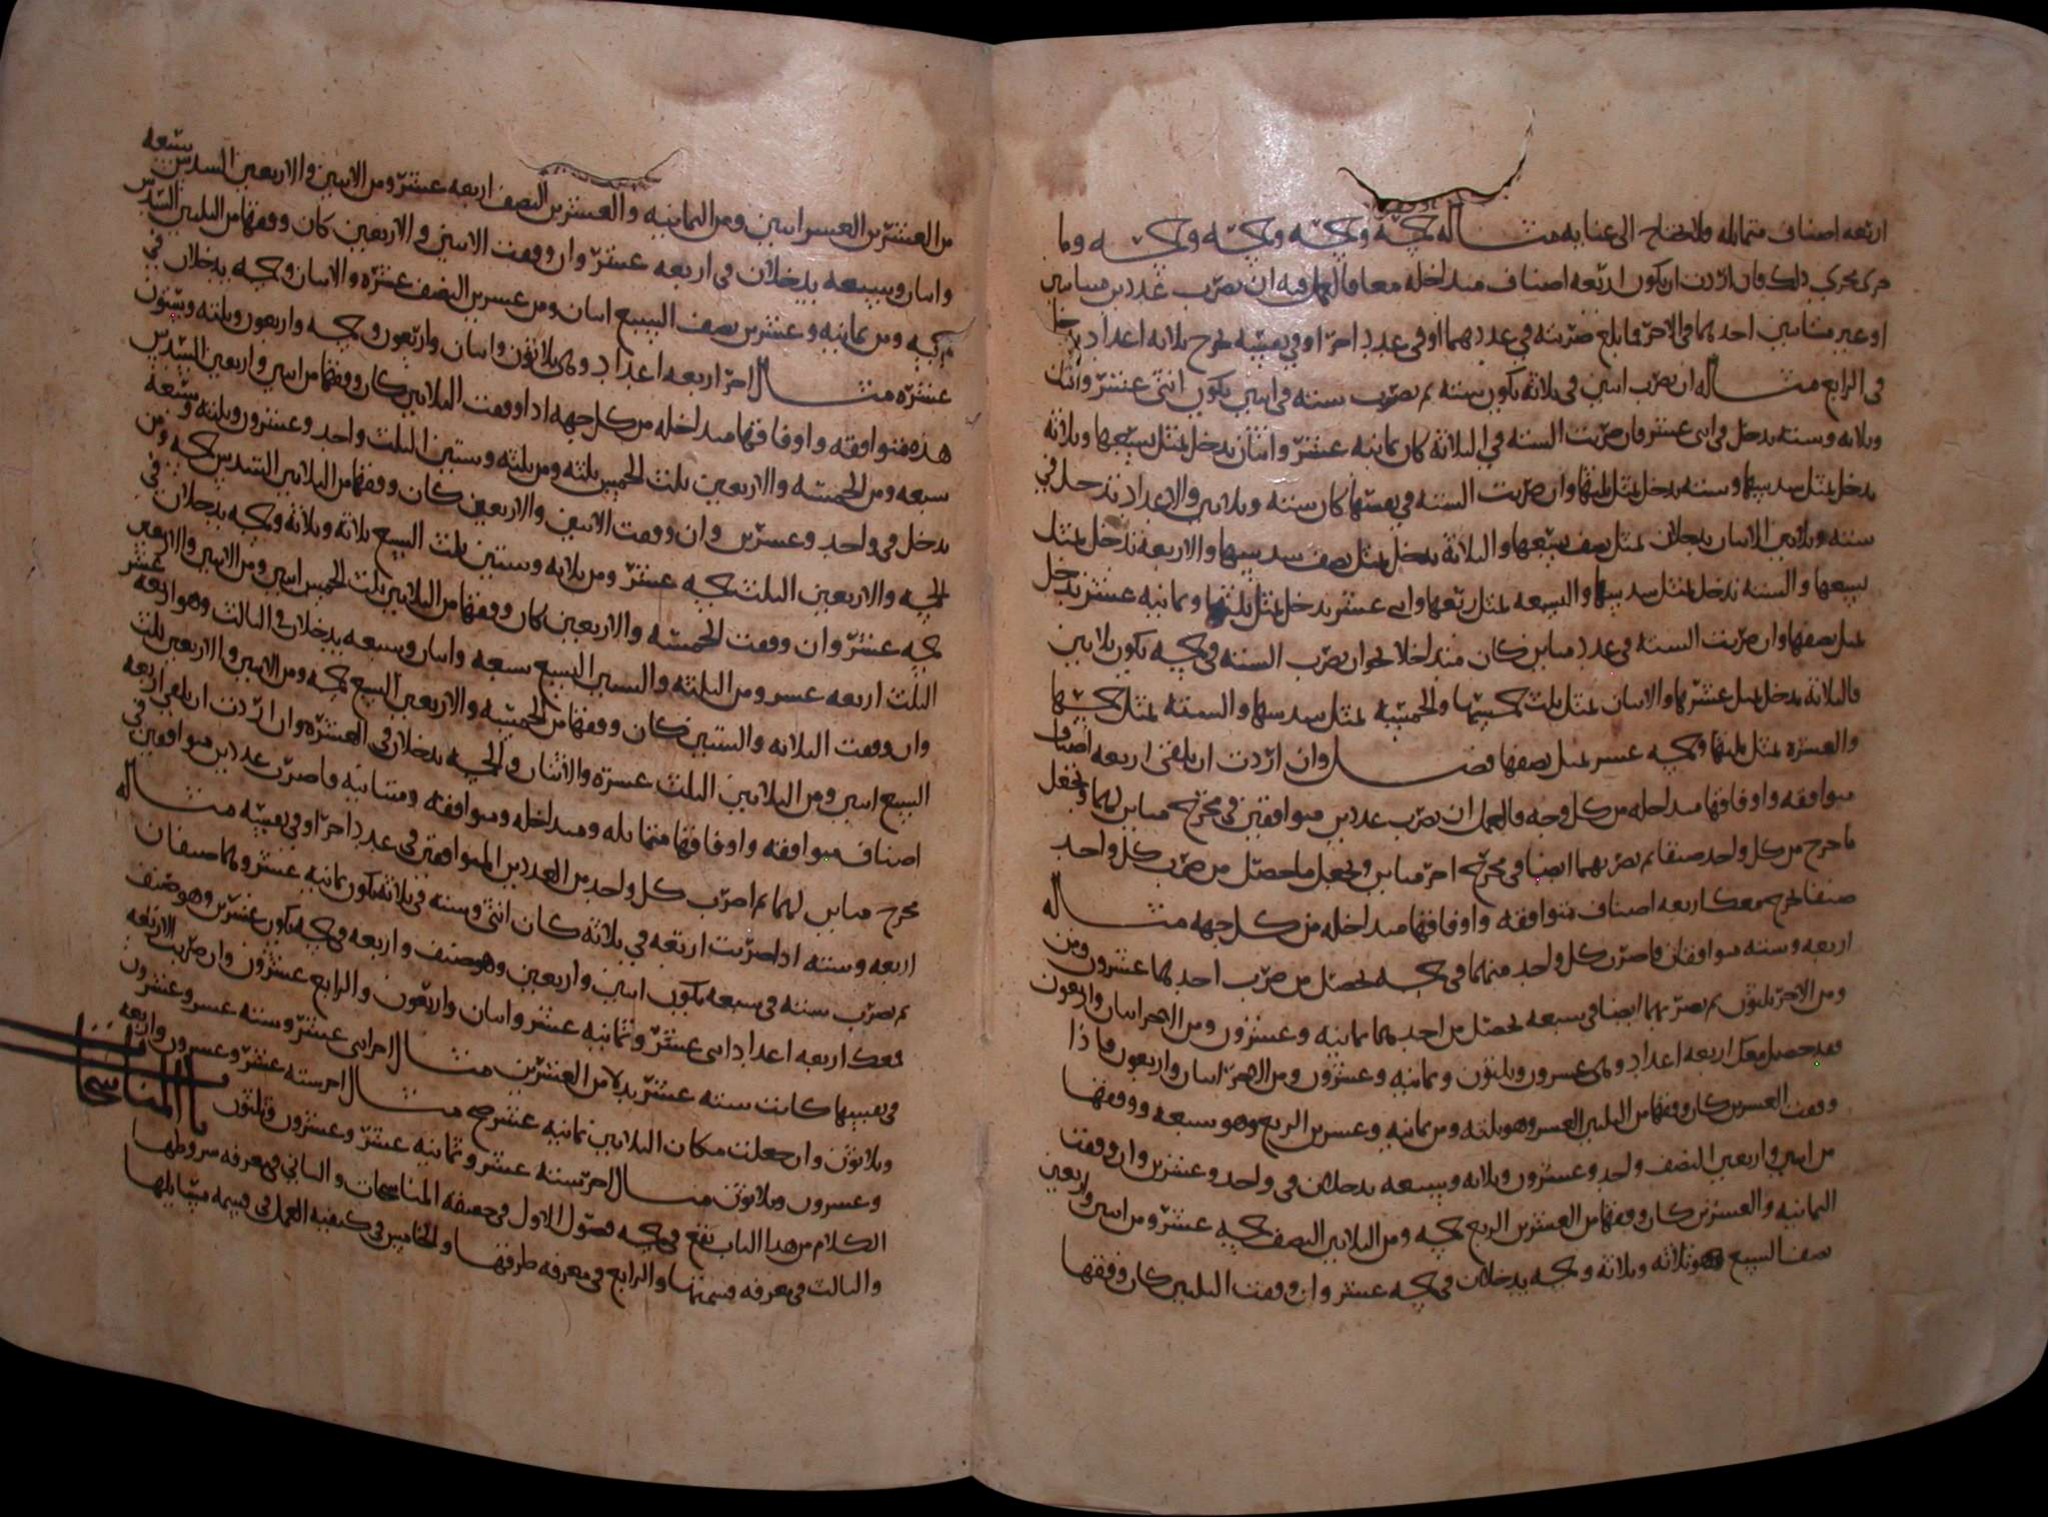 اربعه اصناف متماثله ولا تحتاج الى عنايه مثاله خمسه وخمسه وخمسه وخمسه وما
جرى مجرى ذلك فان اردت ان يكون اربعه اصناف متداخله معا فالعمل فيه ان تضرب عددين متباينين
او غير متباينين احدهما في الاخر فما بلغ ضربته في عددهما او في عدد اخر او في نفسه تخرج ثلاثه اعداد تدخل
في الرابع مثاله ان تضرب اثنين في ثلاثه يكون سته ثم تضرب سته في اثنين يكون اثنى عشر واثنان
وثلاثه وسته تدخل في اثنى عشر فان ضربت السته في الثلاثه كان ثمانيه عشر واثنان تدخل بمثل تسعها وثلاثه
تدخل بمثل سدسها وسته تدخل بمثل ثلثها وان ضربت السته في نفسها كان سته وثلاثين والاعداد تدخل في
سته وثلاثين الاثنان يدخلان بمثل نصف تسعها والثلاثه تدخل بمثل نصف سدسها والاربعه تدخل بمثل
تسعها والسته تدخل بمثل سدسها والتسعه بمثل ربعها واثنى عشر تدخل بمثل ثلثها وثمانيه عشر تدخل
بمثل نصفها وان ضربت السته في عدد مباين كان متداخلا نحو ان تضرب السته في خمسه يكون ثلاثين
فالثلاثه تدخل بمثل عشرها والاثنان بمثل ثلث خمسها والخمسه بمثل سدسها والسته بمثل خمسها
والعشره بمثل ثلثها وخمسه عشر بمثل نصفها فصل وان اردت ان تلقى اربعه اصناف
متوافقه واوفاقها متداخله من كل وجه فالعمل ان تضرب عددين متوافقين في مخرج مباين لهما وتجعل
ما خرج من كل واحد صنفا ثم تضربهما ايضا في مخرج اخر مباين وتجعل ما حصل من ضرب كل واحد
صنفا تخرج معك اربعه اصناف متوافقه واوفاقها متداخله من كل جهه مثاله
اربعه وسته متوافقان فاضرب كل واحد منهما في خمسه تحصل من ضرب احدهما عشرون ومن
ومن الاخر ثلثون ثم تضربهما ايضا في سبعه تحصل من احدهما ثمانيه وعشرون ومن الاخر اثنان واربعون
فقد حصل معك اربعه اعداد وهي عشرون وثلثون وثمانيه وعشرون ومن الاخر اثنان واربعون فاذا
وفقت العشرين كان وفقها من الثلثين العشر وهو ثلثه ومن ثمانيه وعشرين الربع وهو سبعه ووفقها
من اثنين واربعين النصف واحد وعشرون وثلاثه وسبعه يدخلان في واحد وعشرين وان وفقت
الثمانيه والعشرين كان وفقها من العشرين الربع خمسه ومن الثلاثين النصف خمسه عشر ومن اثنين واربعين
نصف السبع وهو ثلاثه وثلاثه وخمسه يدخلان في خمسه عشر وان وفقت الثلثين كان وفقها
من العشرين العشر اثنين ومن الثمانيه والعشرين النصف اربعه عشر ومن الاثنين والاربعين السدس سبعه
واثنان وسبعه يدخلان في اربعه عشر وان وفقت الاثنين والاربعين كان وفقها من الثلثين السدس
خمسه ومن ثمانيه وعشرين نصف السبع اثنان ومن عشرين النصف عشره والاثنان وخمسه يدخلان في
عشره مثال اخر اربعه اعداد وهي ثلاثون واثنان واربعون وخمسه واربعون وثلثه وستون
هذه متوافقه واوفاقها متداخله من كل جهه اذا وفقت الثلاثين كان وفقها من اثنين واربعين السدس
سبعه ومن الخمسه والاربعين ثلث الخمس ثلثه ومن ثلثه وستين الثلث واحد وعشرون وثلثه وسبعه
تدخل في واحد وعشرين وان وفقت الاثنين والاربعين كان وفقها من الثلاثين السدس خمسه ومن
الخمسه والاربعين الثلث خمسه عشر ومن ثلاثه وستين ثلث السبع ثلاثه وثلاثه وخمسه يدخلان في
خمسه عشر وان وفقت الخمسه والاربعين كان وفقها من الثلاثين ثلث الخمس اثنين ومن الاثنين والاربعين
الثلث اربعه عشر ومن الثلثه والستين التسع سبعه واثنان وسبعه يدخلان في الثالث وهو اربعه عشر
وان وفقت الثلاثه والستين كان وفقها من الخمسه والاربعين التسع خمسه ومن الاثنين والاربعين ثلث
السبع اثنين ومن الثلاثين الثلث عشره والاثنان والخمسه يدخلان في العشره وان اردت ان تلقى اربعه
اصناف متوافقه واوفاقها متماثله ومتداخله ومتوافقه ومتباينه فاضرب عددين متوافقين في
مخرج مباين لهما ثم اضرب كل واحد من العددين المتوافقين في عدد اخر او في نفسه مثاله
اربعه وسته اذا ضربت اربعه في ثلاثه كان اثنى وسته في ثلاثه يكون ثمانيه عشر وهما صنفان
ثم تضرب سته في سبعه يكون اثنين واربعين وهو صنف واربعه في خمسه يكون عشرين وهو صنف
فمعك اربعه اعداد اثنى عشر وثمانيه عشر واثنان واربعون والرابع عشرون وان ضربت الاربعه
في نفسها كانت سته عشر بدلا من العشرين مثال اخر اثنى عشر وسته عشر وعشرون
وثلاثون وان جعلت مكان الثلاثين ثمانيه عشر صح مثال اخر سته عشر وعشرون واربعه
وعشرون وثلاثون مثال اخر سته عشر وثمانيه عشر وعشرون وثلثون باب المناسخات
الكلام من هذا الباب يقع في خمسه فصول الاول في حقيقه المناسخات والثاني في معرفه شروطها
والثالث في معرفه قسمتها والرابع في معرفه طرقها والخامس في كيفيه العمل في قسمه مسائلها